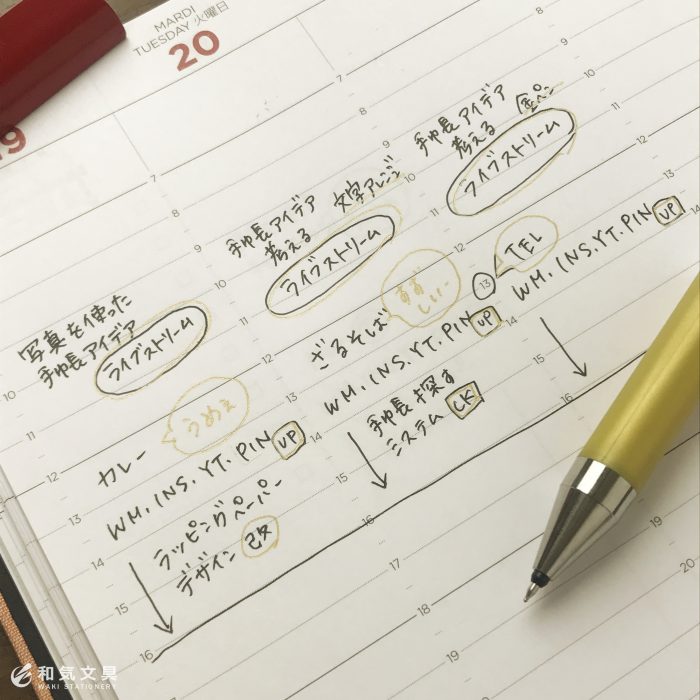 MARDI
TUESDAY 火曜日
20
19
写真を使った
手帳アイデア
ライブストリーム
うめぇ
カレー
WM. INS. YT. PIN UP
ラッピングペーパー
デザイン 改
手帳アイデア
考える
文字アレンジ
ライブストリーム
すずしぃー
ざるそば
WM. INS. YT. PIN UP
手帳探す
システム CK
手帳アイデア
考える
金ペン
ライブストリーム
TEL
13
WM. INS. YT. PIN UP
7
8
9
10
11
12
13
14
15
16
7
8
9
10
11
12
13
14
15
16
17
18
19
8
9
10
11
12
14
16
20
和気文具
WAKI STATIONERY